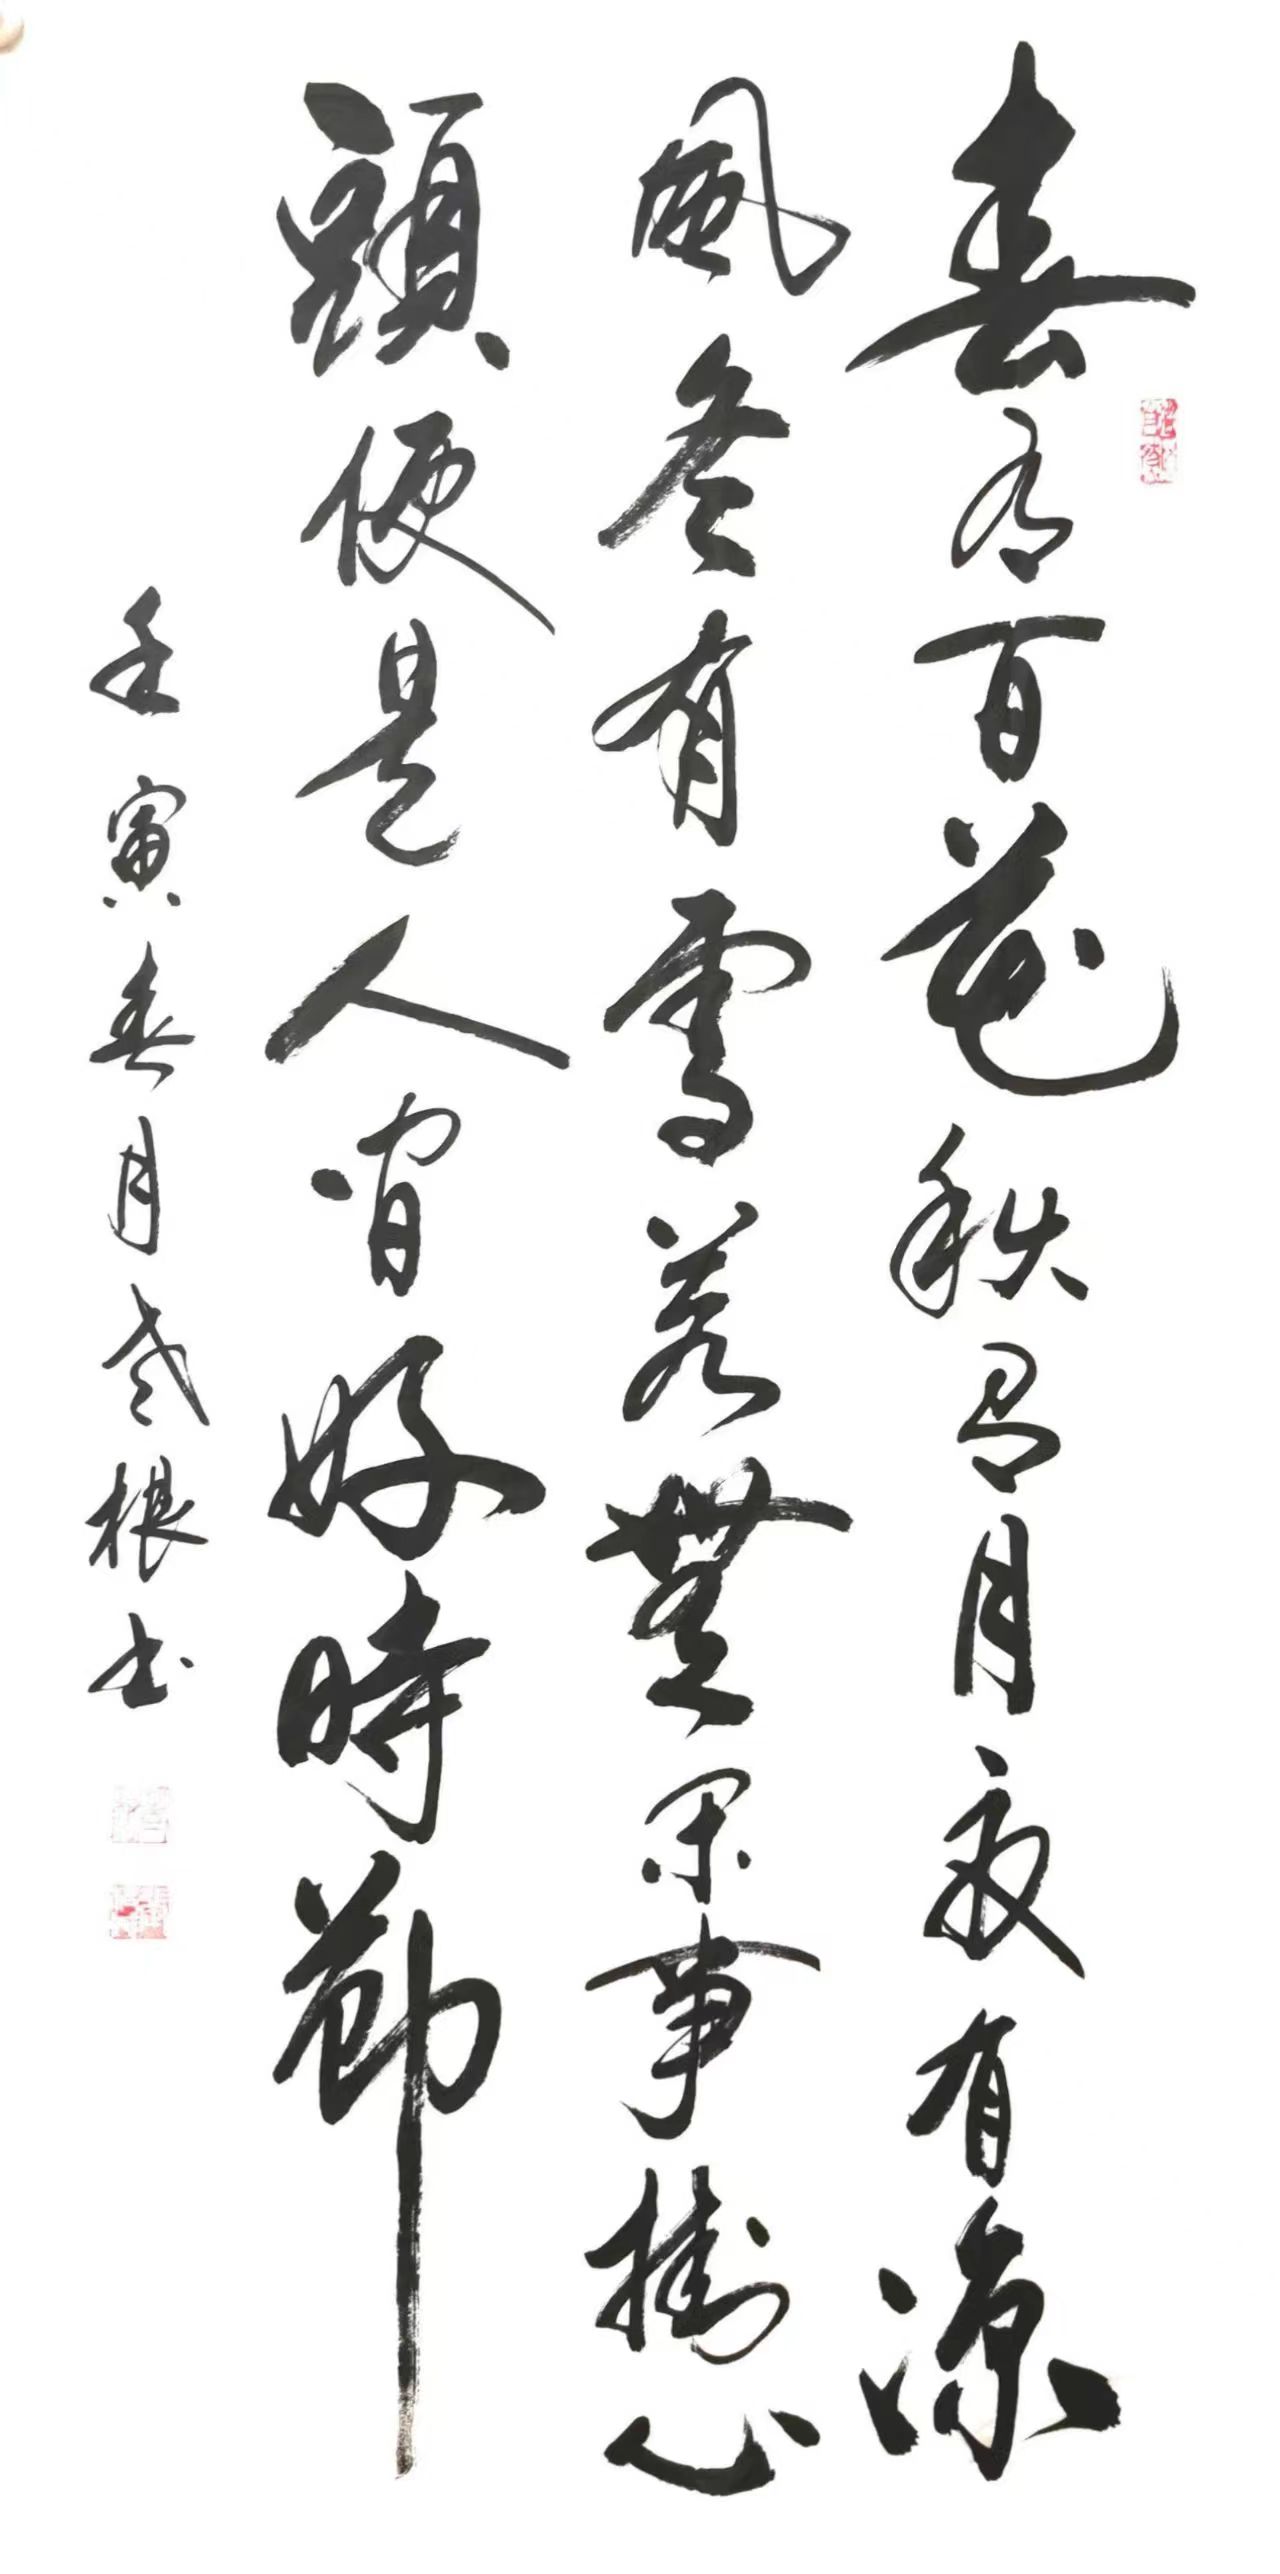 春有百花秋有月夏有凉
風冬有雪若無閑事掛心
頭便是人間好時節
壬寅春月 根书